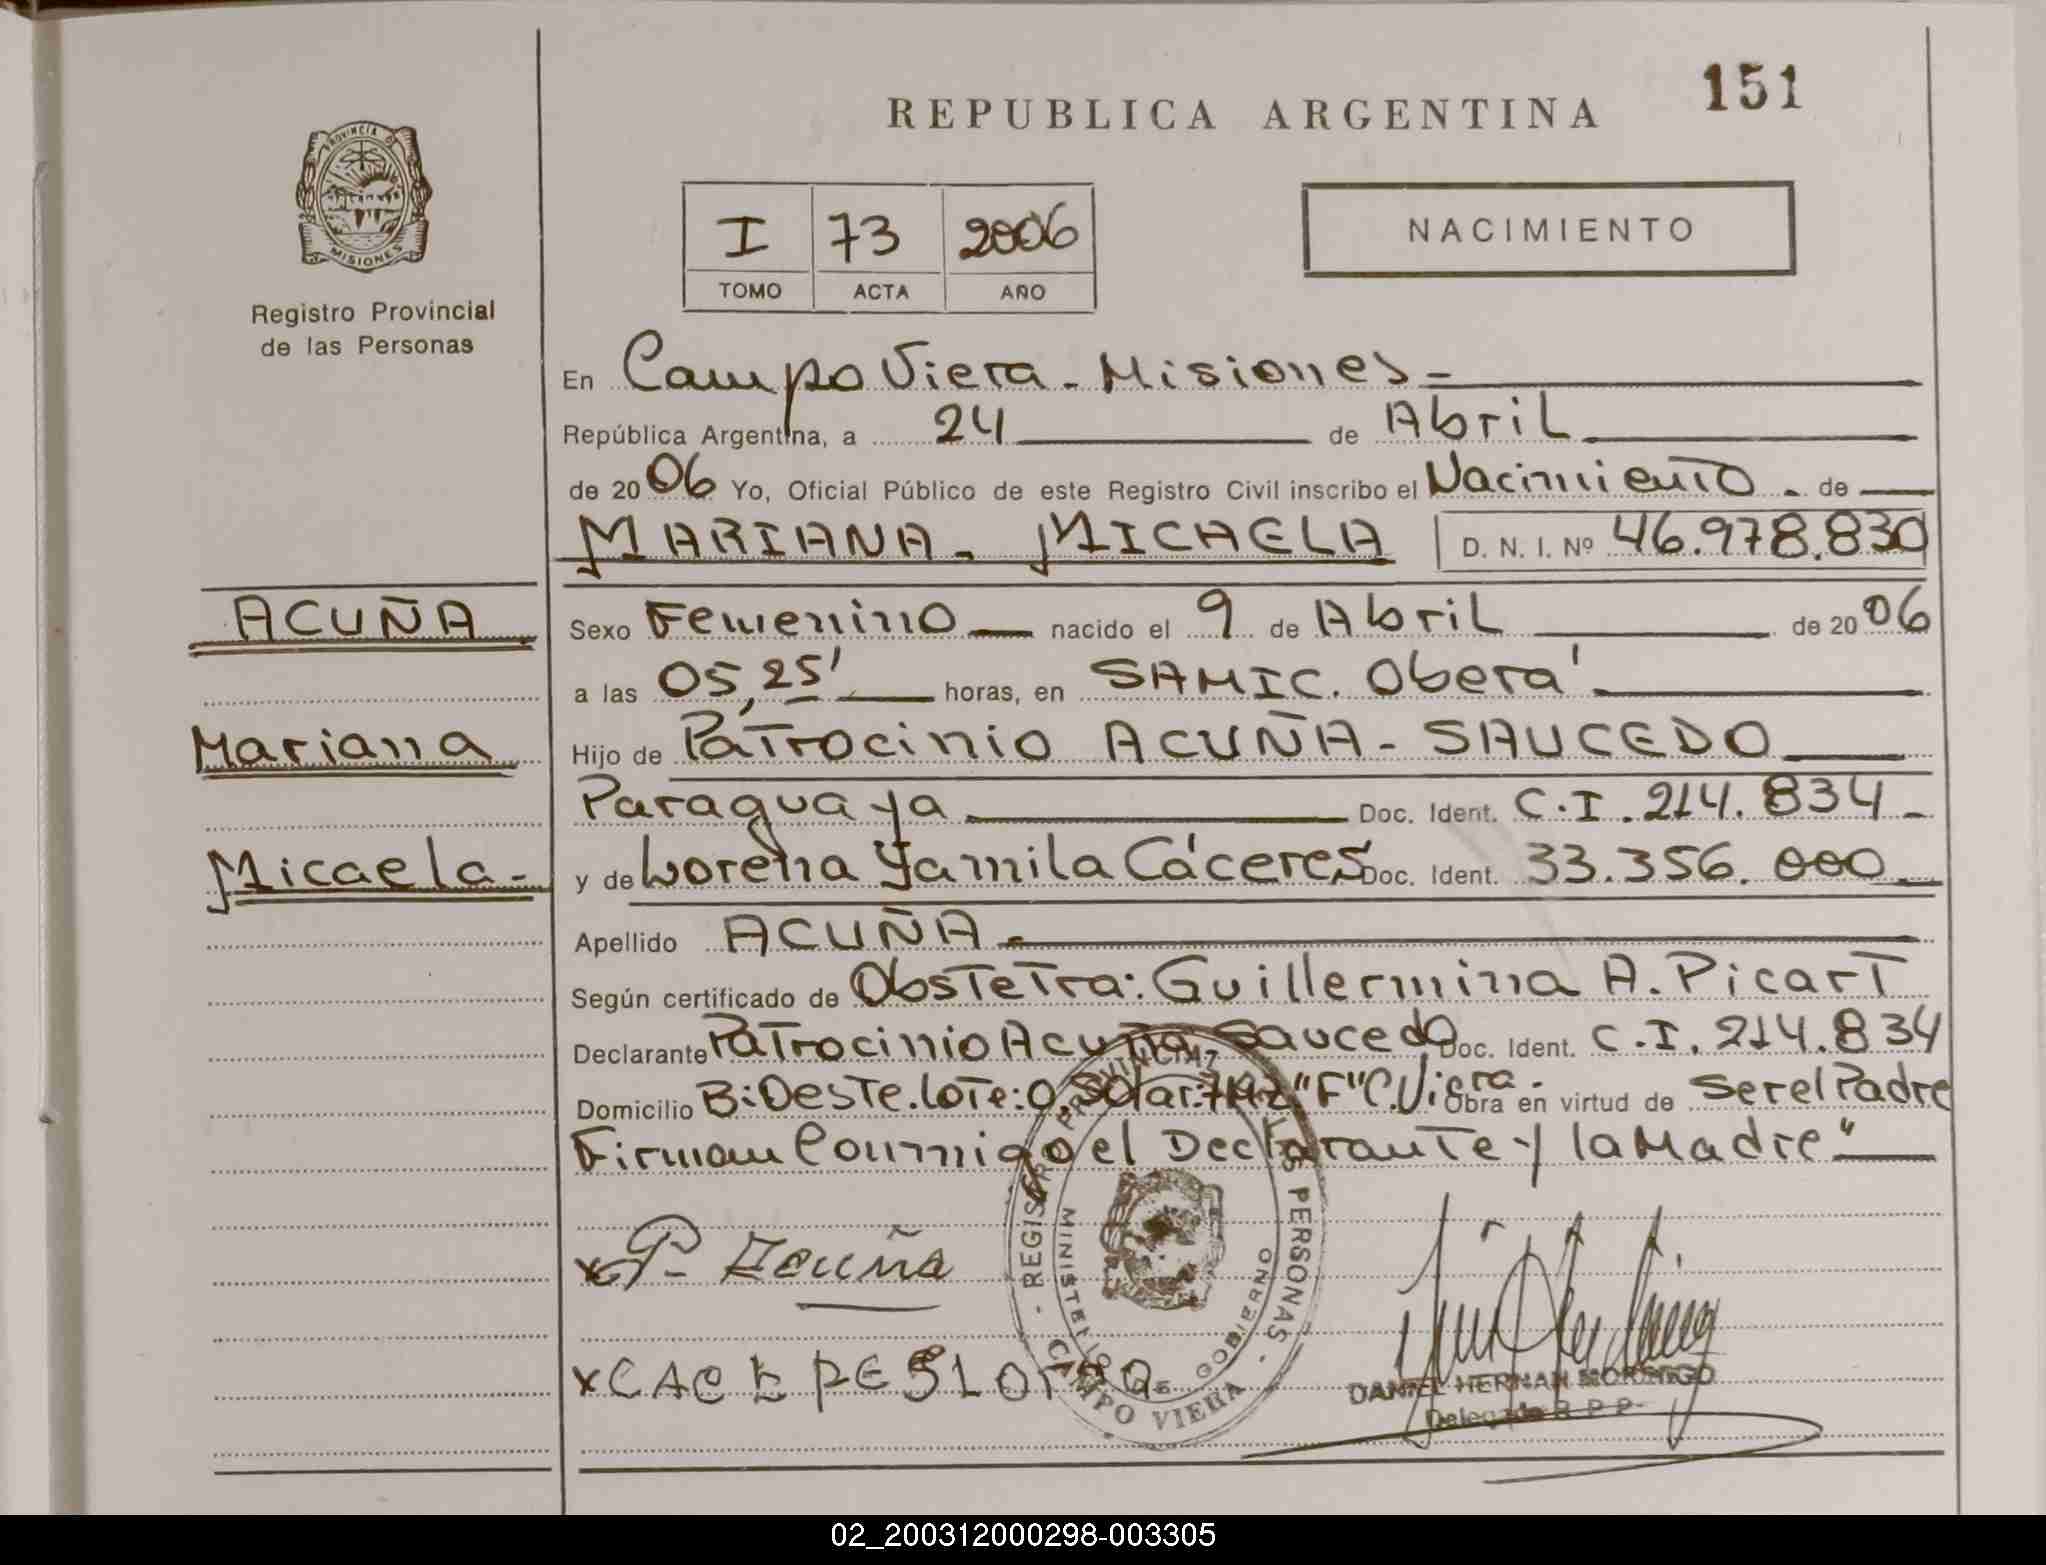 151
REPUBLICA ARGENTINA
PROVINCIA DE
MISIONES
Registro Provincial
de las Personas
I 73 2006
TOMO ACTA AÑO
NACIMIENTO
En Campo Viera - Misiones -
República Argentina, a 24 de Abril
de 2006 Yo, Oficial Público de este Registro Civil inscribo el Nacimiento - de
MARIANA - MICAELA D. N. I. Nº 46.978.830
ACUÑA
Mariana
Micaela -
Sexo Femenino nacido el 9 de Abril de 2006
a las 05,25' horas, en SAMIC. Oberá
Hijo de Patrocinio ACUÑA - SAUCEDO
Paraguaya Doc. Ident. C.I. 214.834 -
y de Lorena Yamila Cáceres Doc. Ident. 33.356.000
Apellido ACUÑA -
Según certificado de Obstetra: Guillermina A. Picart
Declarante Patrocinio Acuña Saucedo Doc. Ident. C.I. 214.834
Domicilio B: Oeste. Lote: 0, Solar: 7 Mz "F" C. Viera - Obra en virtud de Ser el Padre
Firman Conmigo el Declarante y la Madre"
x P- Acuña
REGISTRO PROVINCIAL DE LAS PERSONAS
MINISTERIO DE GOBIERNO
CAMPO VIERA
DANIEL HERNAN MORINIGO
Delegado R.P.P.
02_200312000298-003305